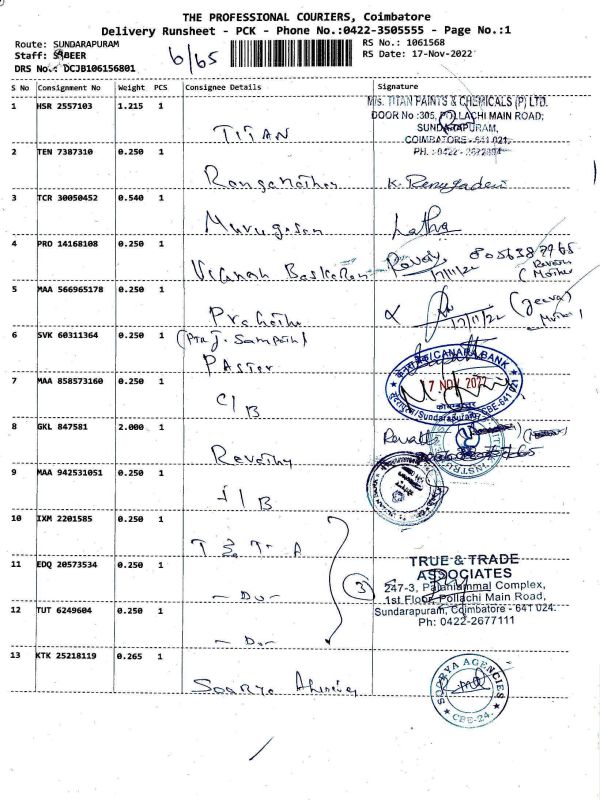 THE PROFESSIONAL COURIERS, Coimbatore
Delivery Runsheet - PCK - Phone No.:0422-3505555 - Page No.:1
Route: SUNDARAPURAM
Staff: SABEER
DRS No.: DCJB106156801
6/65
RS No.: 1061568
RS Date: 17-Nov-2022
S No Consignment No Weight PCS Consignee Details Signature
1 HSR 2557103 1.215 1
TITAN
M/S. TITAN PAINTS & CHEMICALS (P) LTD.
DOOR No :305, POLLACHI MAIN ROAD,
SUNDARAPURAM,
COIMBATORE - 641 021.
2 TEN 7387310 0.250 1
K. Renugadevi
3 TCR 30050452 0.540 1
Murugesan
Latha
4 PRO 14168108 0.250 1
17/11/22
(Mother
5 MAA 566965178 0.250 1
17/11/22
(Jeeva)
6 SVK 60311364 0.250 1
(Ptr J. Sampath)
PASTER
CANARA BANK
17 NOV 2022
Sundarapuram CBE-641 021
7 MAA 858573160 0.250 1
C/B
8 GKL 847581 2.000 1
Revathy
9 MAA 942531051 0.250 1
I/B
10 IXM 2201585 0.250 1
T & T A
11 EDQ 20573534 0.250 1
- Do -
3
TRUE & TRADE
ASSOCIATES
247-3, Palaniammal Complex,
1st Floor, Pollachi Main Road,
Sundarapuram, Coimbatore - 641 024.
Ph: 0422-2677111
12 TUT 6249604 0.250 1
- Do -
13 KTK 25218119 0.265 1
SOORYA AGENCIES
CBE-24.